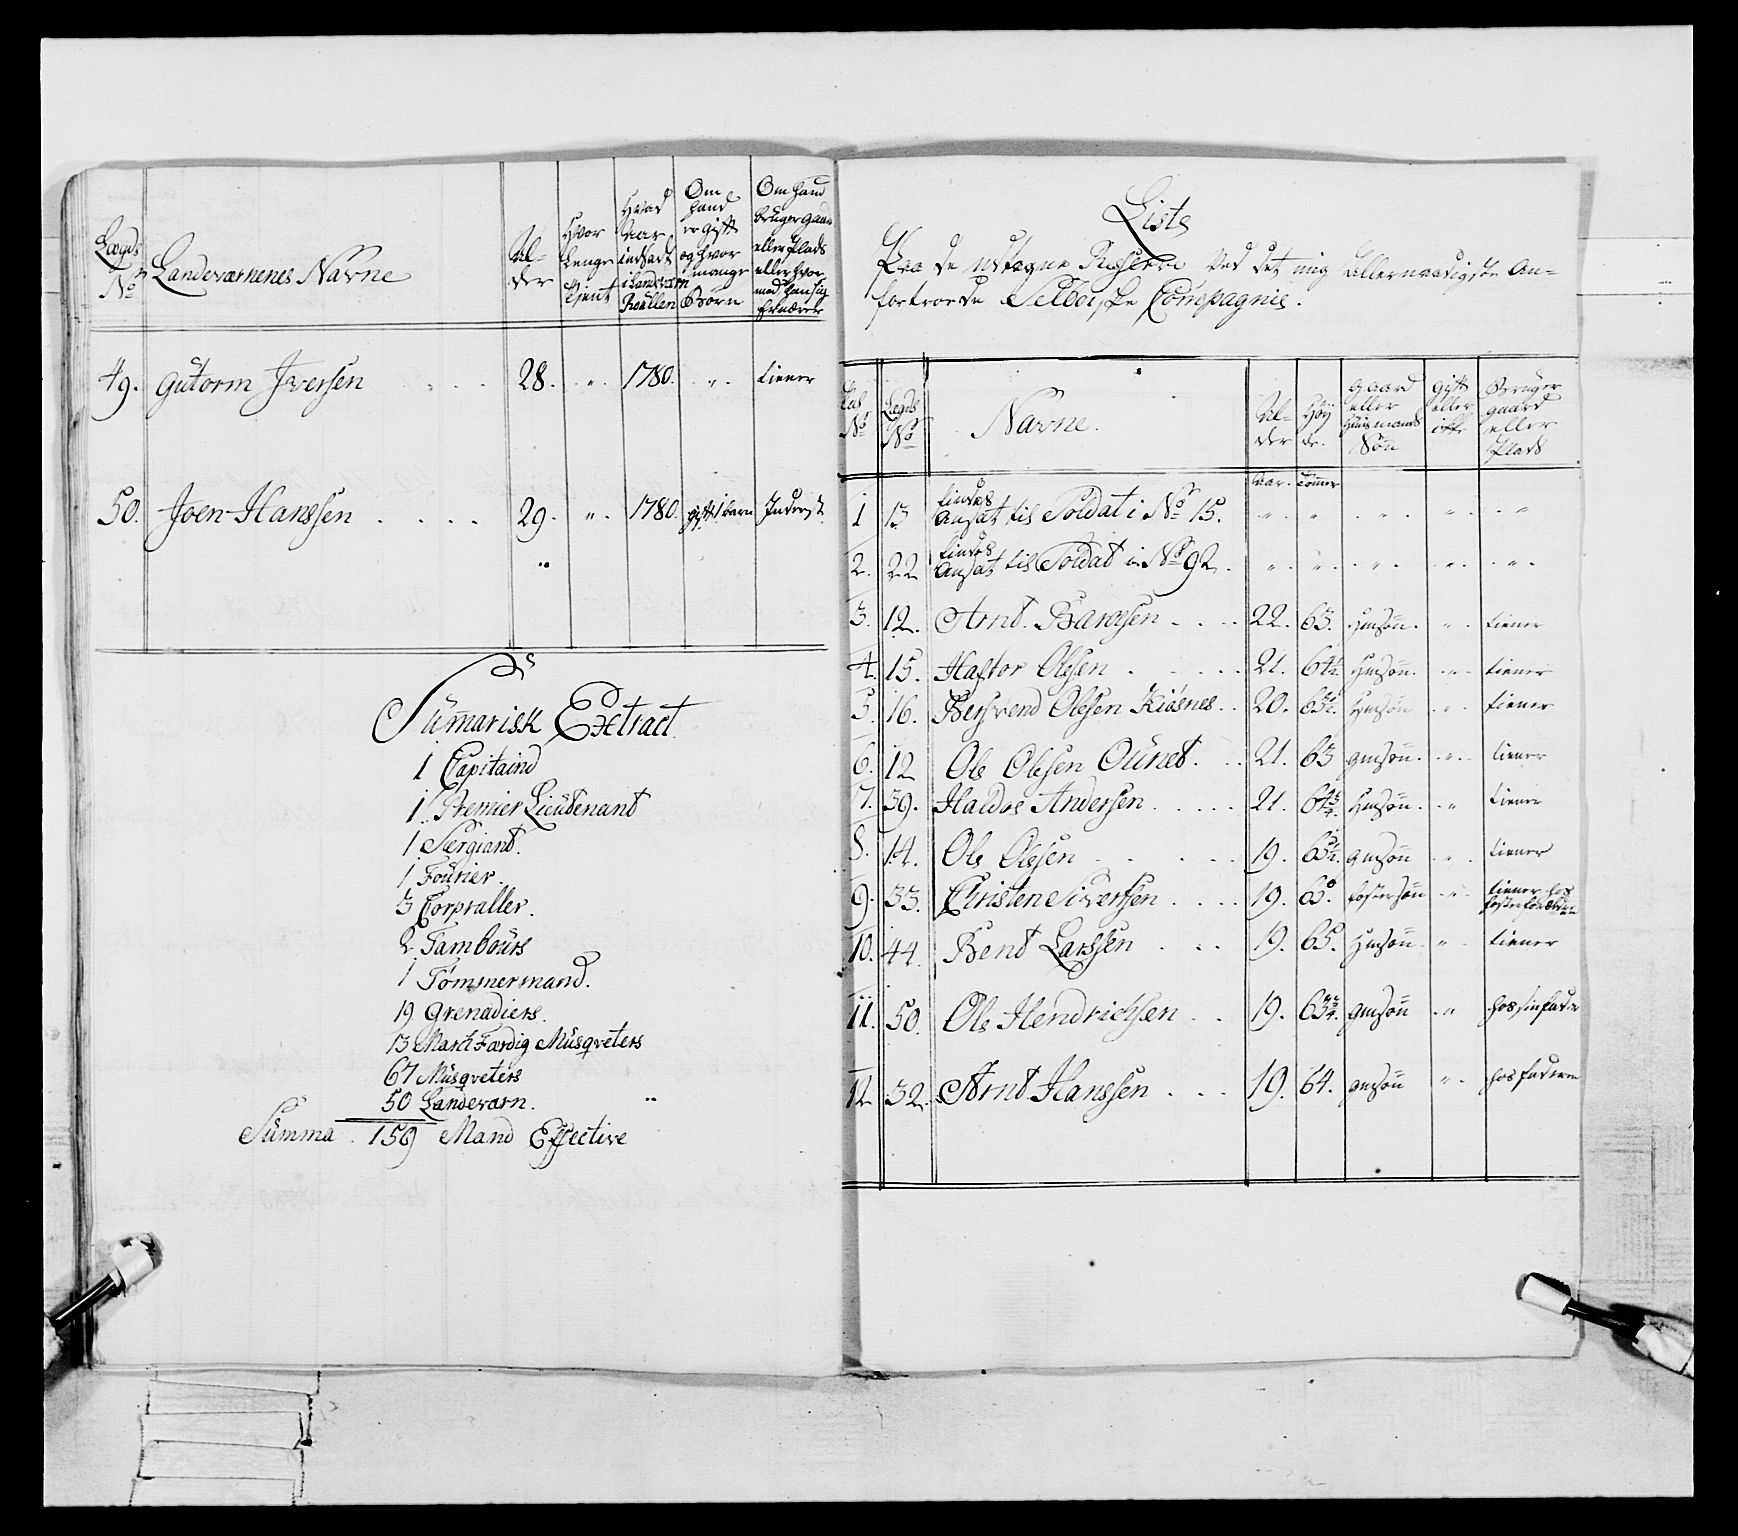 Lægds No
Landeværnenes Navne
Alder
Hvor Lenge tient
Hvad Aar indsadt i Landværn Roullen
Om hand er gift og hvor mange Børn
Om hand bruger gaard eller Plads eller hvormed han sig ernærer
49. Gutorm Iversen 28. " 1780. " tiener
50. Joen Hanssen 29. " 1780. gift 1 barn Inderst
Summarisk Extract
1 Capitaind
1 Premier Lieutenant
1 Sergiant.
1 Fourier.
3 Corpraller.
2 Tambours
1 Tømmermand.
19 Grenadiers.
13 March Færdig Musqveters
67 Musqveters
50 Landeværn.
Summa 159 Mand Effective
Liste
Paa de udtagne Reserve ved det mig allernaadigste An-
fortroede Selboiske Compagnie.
No
Lægds No
Navne.
Alder
Høyde.
gaard eller Huusmands Søn
gift eller ikke
Bruger gaard eller Plads
Aar. Tommer
1 13 Ansat til Soldat i No 15. " " " " "
2. 22 Ansat til Soldat i No 92. " " " " "
3. 12. Arnt Baarsen 22. 63. Hmsøn. " tiener
4. 15. Haftor Olesen 21. 64½ Hmsøn. " tiener
5. 16. Bersvend Olesen Kiøsnes. 20. 63½. Hmsøn " tiener
6. 12 Ole Olesen Ouvet. 21. 63 gmsøn. " tiener
7. 39. Haldoe Andersen 21. 64¾. Hmsøn. " tiener
8. 14. Ole Olesen 19. 63½. gmsøn " tiener
9. 33. Christen Siverssen 19. 63. fostersøn " tiener hos fosterforældrene
10. 44. Bent Larssen 19. 65. Hmsøn " tiener
11. 50. Ole Hendrichsen 19. 63¾. gmsøn " hos sin fader
12 32. Arnt Hanssen 19. 64. gmsøn " hos faderen